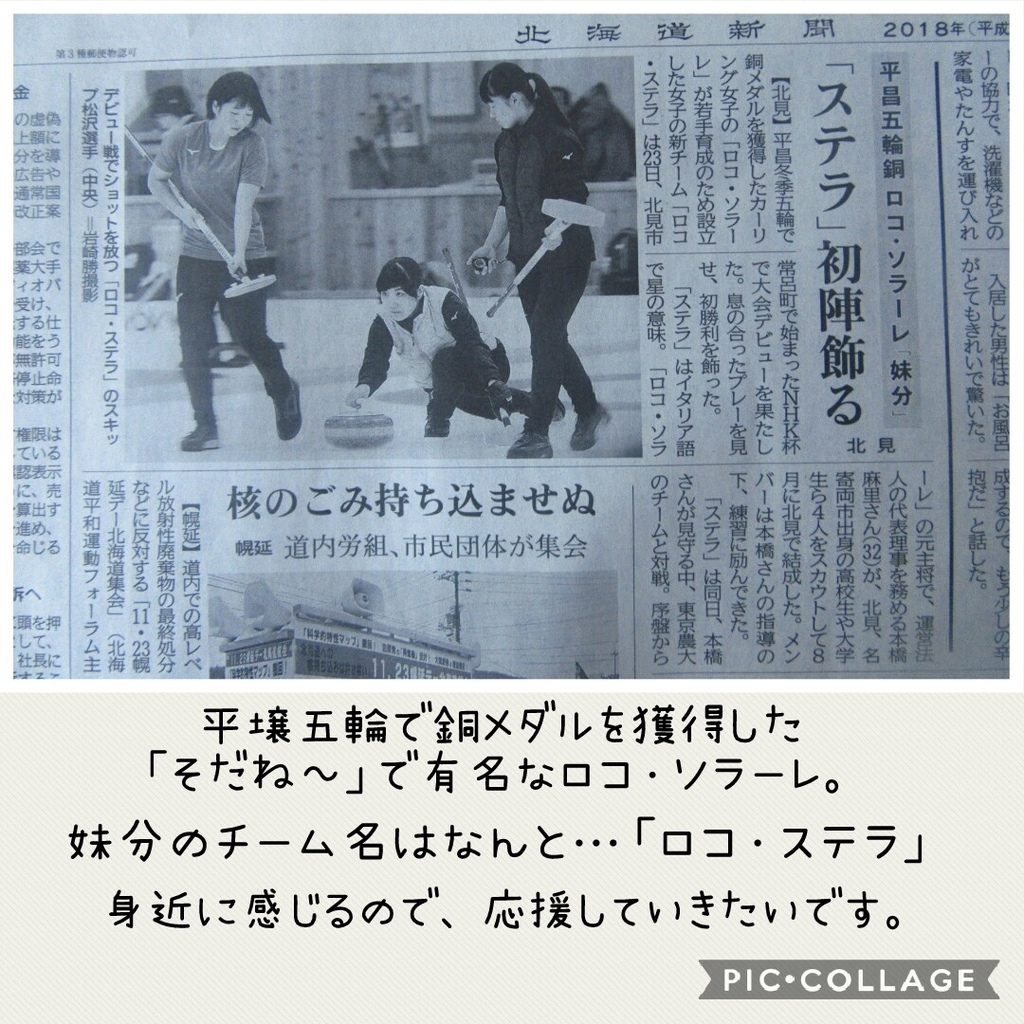 北海道新聞
2018年(平成
第3種郵便物認可
ーの協力で、洗濯機などの
家電やたんすを運び入れ
入居した男性は「お風呂
がとてもきれいで驚いた。
成するので、もう少しの辛
抱だ」と話した。
平昌五輪銅 ロコ・ソラーレ「妹分」
「ステラ」初陣飾る
北見
【北見】平昌冬季五輪で
銅メダルを獲得したカーリ
ング女子の「ロコ・ソラー
レ」が若手育成のため設立
した女子の新チーム「ロコ
・ステラ」は23日、北見市
常呂町で始まったNHK杯
で大会デビューを果たし
た。息の合ったプレーを見
せ、初勝利を飾った。
「ステラ」はイタリア語
で星の意味。「ロコ・ソラ
ーレ」の元主将で、運営法
人の代表理事を務める本橋
麻里さん(32)が、北見、名
寄両市出身の高校生や大学
生ら4人をスカウトして8
月に北見で結成した。メン
バーは本橋さんの指導の
下、練習に励んできた。
「ステラ」は同日、本橋
さんが見守る中、東京農大
のチームと対戦。序盤から
デビュー戦でショットを放つ「ロコ・ステラ」のスキッ
プ松沢選手(中央)=岩崎勝撮影
核のごみ持ち込ませぬ
幌延 道内労組、市民団体が集会
【幌延】道内での高レベ
ル放射性廃棄物の最終処分
などに反対する「11・23幌
延デー北海道集会」(北海
道平和運動フォーラム主
金
の虚偽
上額に
分を導
広告や
通常国
改正案
部会で
薬大手
ィオバ
受け、
する仕
能をう
無許可
停止命
対策が
権限は
ている
認表示
に、売
算出す
進め、
命じる
訴へ
頭を押
して、
社長に
平壌五輪で銅メダルを獲得した
「そだね～」で有名なロコ・ソラーレ。
妹分のチーム名はなんと…「ロコ・ステラ」
身近に感じるので、応援していきたいです。
PIC•COLLAGE